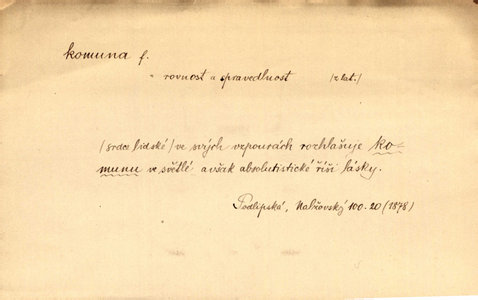 komuna f.
„ rovnost a spravedlnost (z lat.)
(srdce lidské) ve svých vzpourách rozhlašuje ko-
munu ve světlé avšak absolutistické říši lásky.
Podlipská, Nalžovský 100.20 (1878)